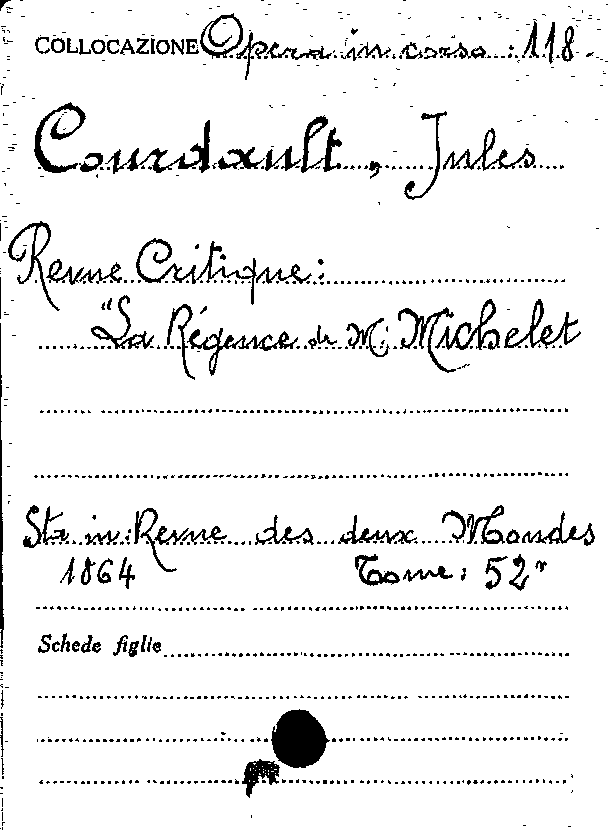 COLLOCAZIONE Opera in corso : 118.
Courdault, Jules
Revue Critique:
"La Régence de M. Michelet
Sta in: Revue des deux Mondes
1864 Tome: 52°
Schede figlie